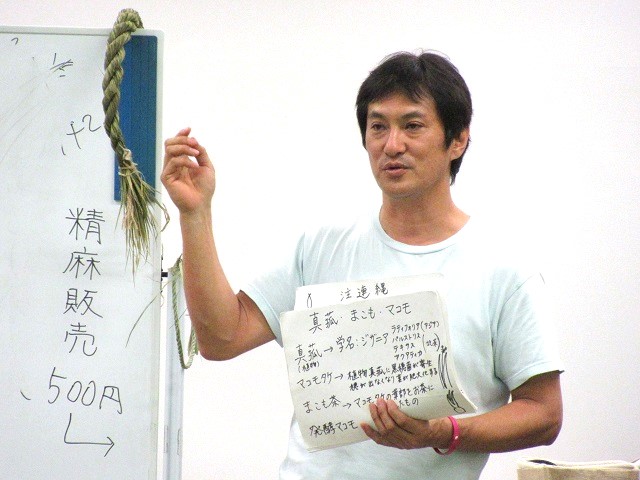 精麻販売
500円
注連縄
真菰・まこも・マコモ
真菰→学名:ジザニア
(植物)
ラティフォリア(アジア)
パルストリス
テキサス
アクアティカ
(北米)
マコモタケ→植物真菰に黒穂菌が寄生
穂が出なくなり茎が肥大化する
まこも茶→マコモタケの葉部をお茶に
したもの
発酵マコモ